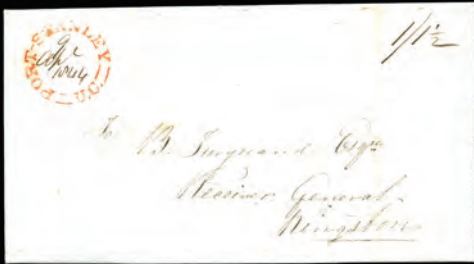 PORT-STANLEY-U.C-
9
Apl
1844
1/1½
To B. Turquand Esqre
Receiver General
Kingston